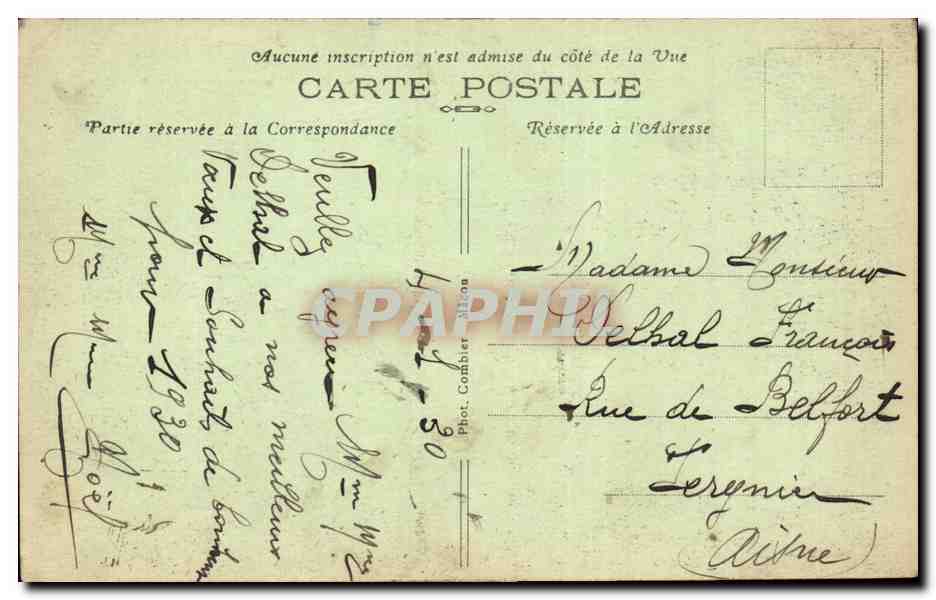 Aucune inscription n'est admise du côté de la Vue
CARTE POSTALE
Partie réservée à la Correspondance
Réservée à l'Adresse
4 - 1 - 30
Veuillez agréer Mm Mme
Delhal a nos meilleux
Vœux et Souhaits de bonheur
pour 1930
Mm Mme Noël
Phot. Combier Mâcon
CARAPHIL
Madame Monsieur
Delhal François
Rue de Belfort
Tergnier
(Aisne)